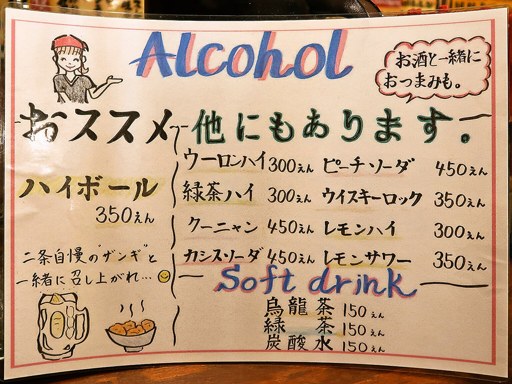 Alcohol
お酒と一緒に
おつまみも。
おススメ
他にもあります。
ハイボール
350えん
二条自慢の"ザンギ"と
一緒に召し上がれ...
ウーロンハイ 300えん
緑茶ハイ 300えん
クーニャン 450えん
カシスソーダ 450えん
ピーチソーダ 450えん
ウイスキーロック 350えん
レモンハイ 300えん
レモンサワー 350えん
Soft drink
烏龍茶 150えん
緑茶 150えん
炭酸水 150えん